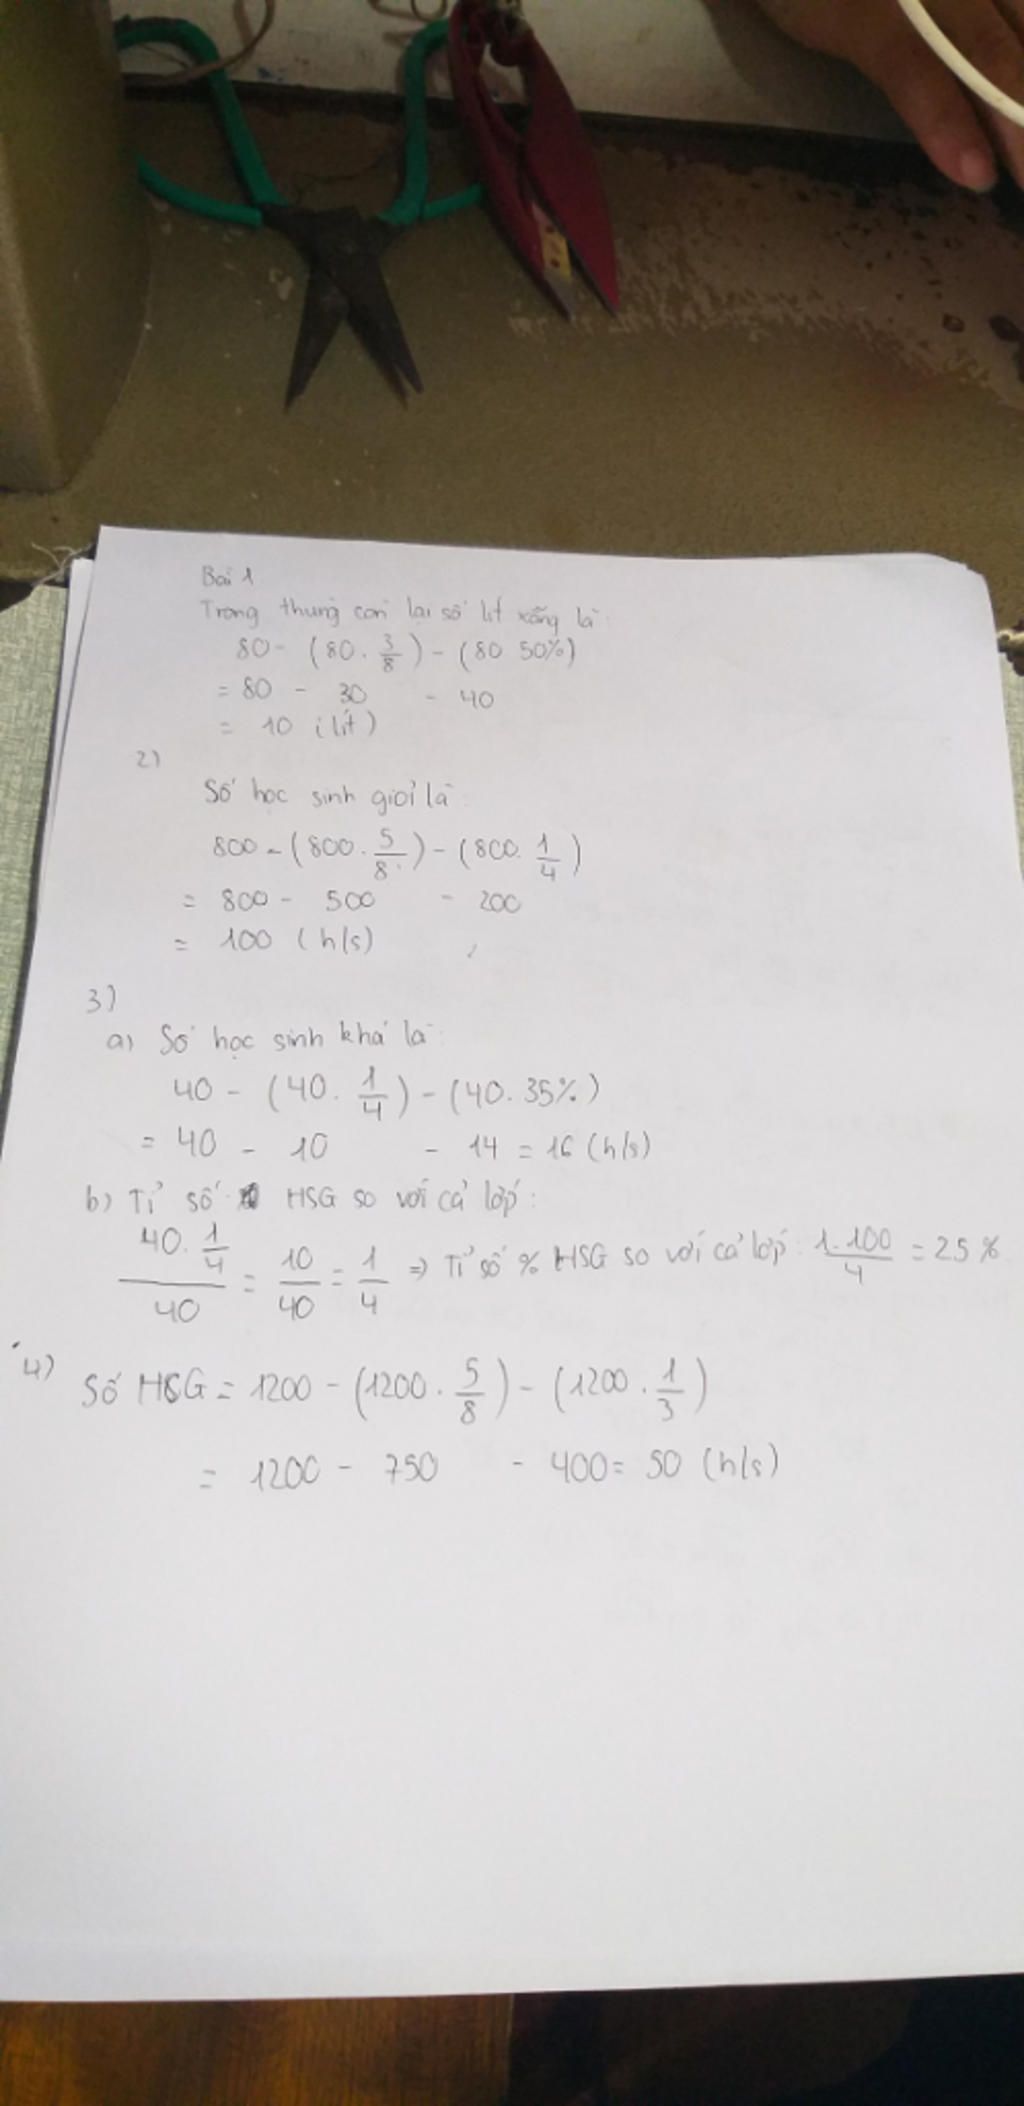 Bài 1
Trong thùng còn lại số lít xăng là:
80 - (80 . 3/8) - (80 50%)
= 80 - 30 - 40
= 10 (lít)
2)
Số học sinh giỏi là:
800 - (800 . 5/8) - (800 . 1/4)
= 800 - 500 - 200
= 100 (h/s)
3)
a) Số học sinh khá là:
40 - (40 . 1/4) - (40 . 35%)
= 40 - 10 - 14 = 16 (h/s)
b) Tỉ số HSG so với cả lớp:
40 . 1/4 / 40 = 10/40 = 1/4 => Tỉ số % HSG so với cả lớp: 1.100/4 = 25%
4)
Số HSG = 1200 - (1200 . 5/8) - (1200 . 1/3)
= 1200 - 750 - 400 = 50 (h/s)